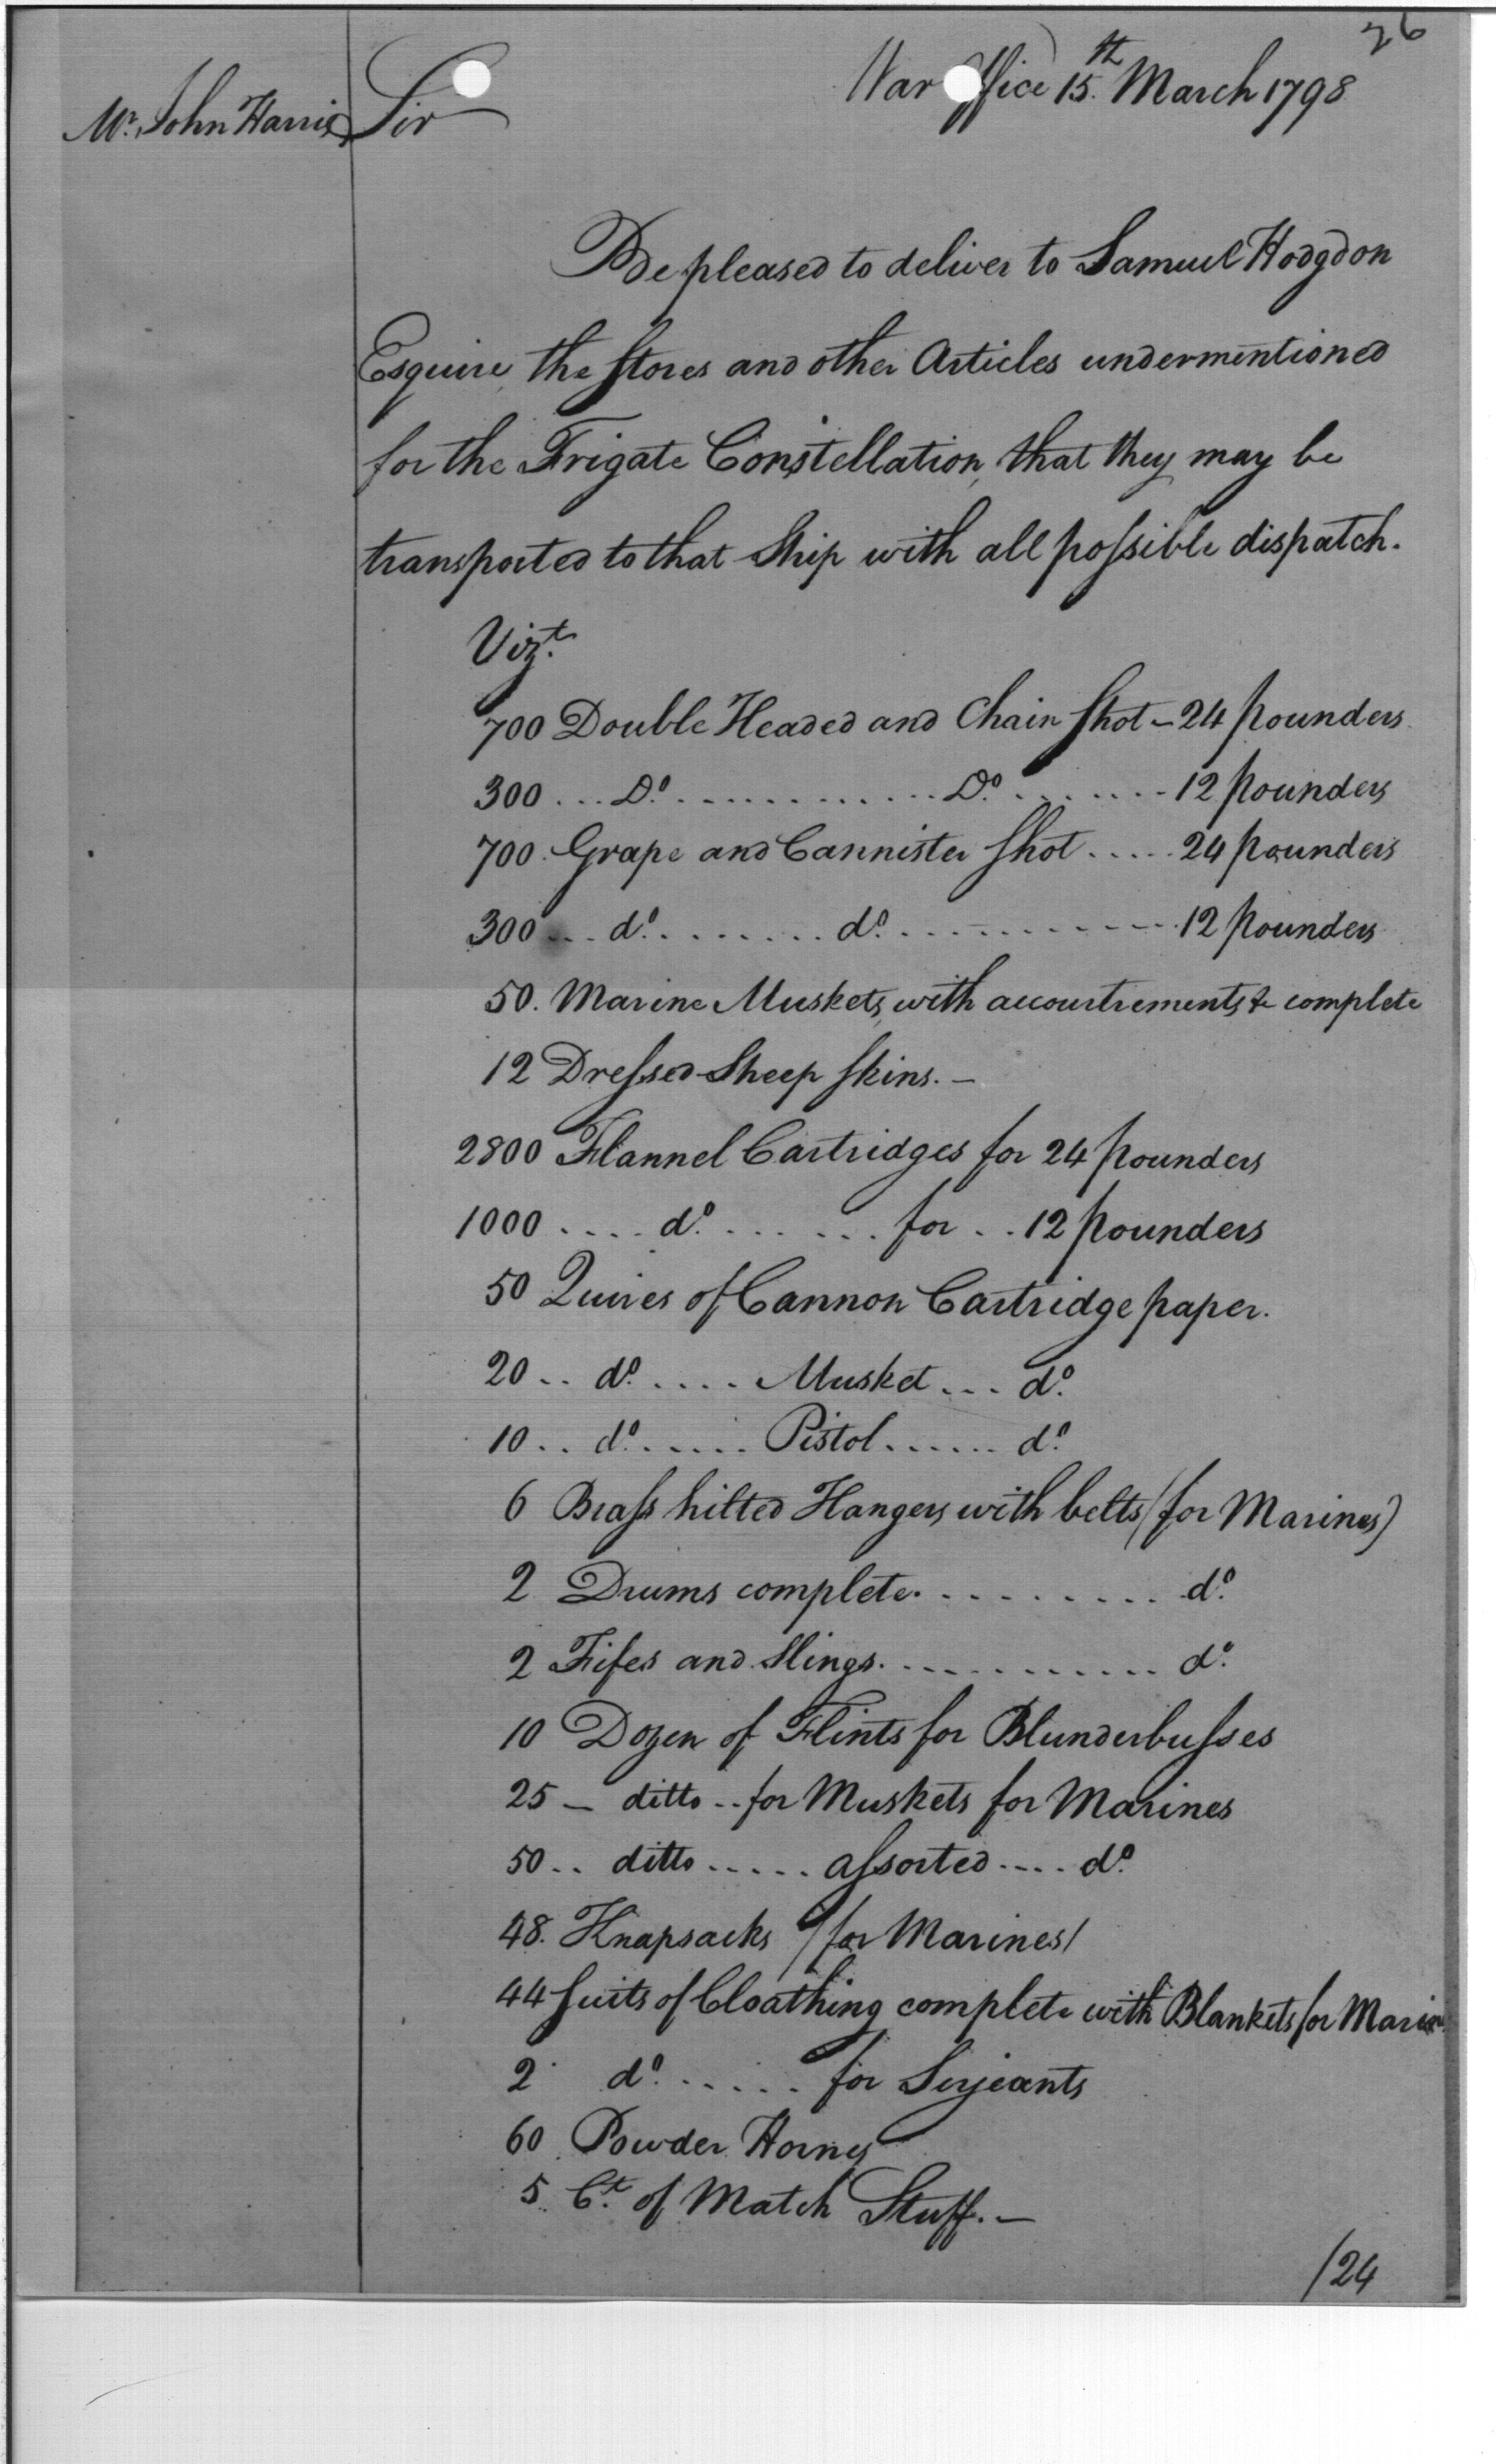 26
War Office 15.th March 1798
Mr. John Harris
Sir
Be pleased to deliver to Samuel Hodgdon
Esquire the Stores and other Articles undermentioned
for the Frigate Constellation, that they may be
transported to that Ship with all possible dispatch.
Vizt.
700 Double Headed and Chain Shot - 24 pounders
300 ... Do. ............... Do. ....... 12 pounders
700. Grape and Cannister Shot ..... 24 pounders
300 ... do. ........ do. ............ 12 pounders
50. Marine Muskets, with accourtrements & complete
12 Dressed Sheep Skins. -
2800 Flannel Cartridges for 24 pounders
1000 .... do. ....... for .. 12 pounders
50 Quires of Cannon Cartridge paper.
20 .. do. .... Musket ... do.
10 .. do. ..... Pistol ...... do.
6 Brass hilted Hangers with belts (for Marines)
2 Drums complete. ......... do.
2 Fifes and Slings. ............ do.
10 Dozen of Flints for Blunderbusses
25 - ditto .. for Muskets for Marines
50 .. ditto ..... assorted .... do.
48. Knapsacks /for Marines/
44 Suits of Cloathing complete with Blankets for
2 do. ..... for Serjeants
60 Powder Horns
5 Ct. of Match Stuff. -
/24